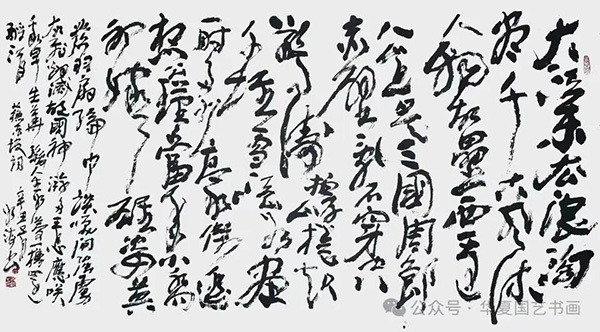 大江东去浪淘
尽千古风流
人物故垒西边
人道是三國周郎
赤壁乱石穿空
惊涛拍岸捲起
千堆雪江山如画
一时多少豪傑遥
想公瑾当年小乔
初嫁了雄姿英
发羽扇纶巾谈笑间强虏
灰飞烟灭故國神游多情应笑
我早生华发人生如梦一樽还
酹江月 苏东坡词 辛丑
公众号·华夏国艺书画